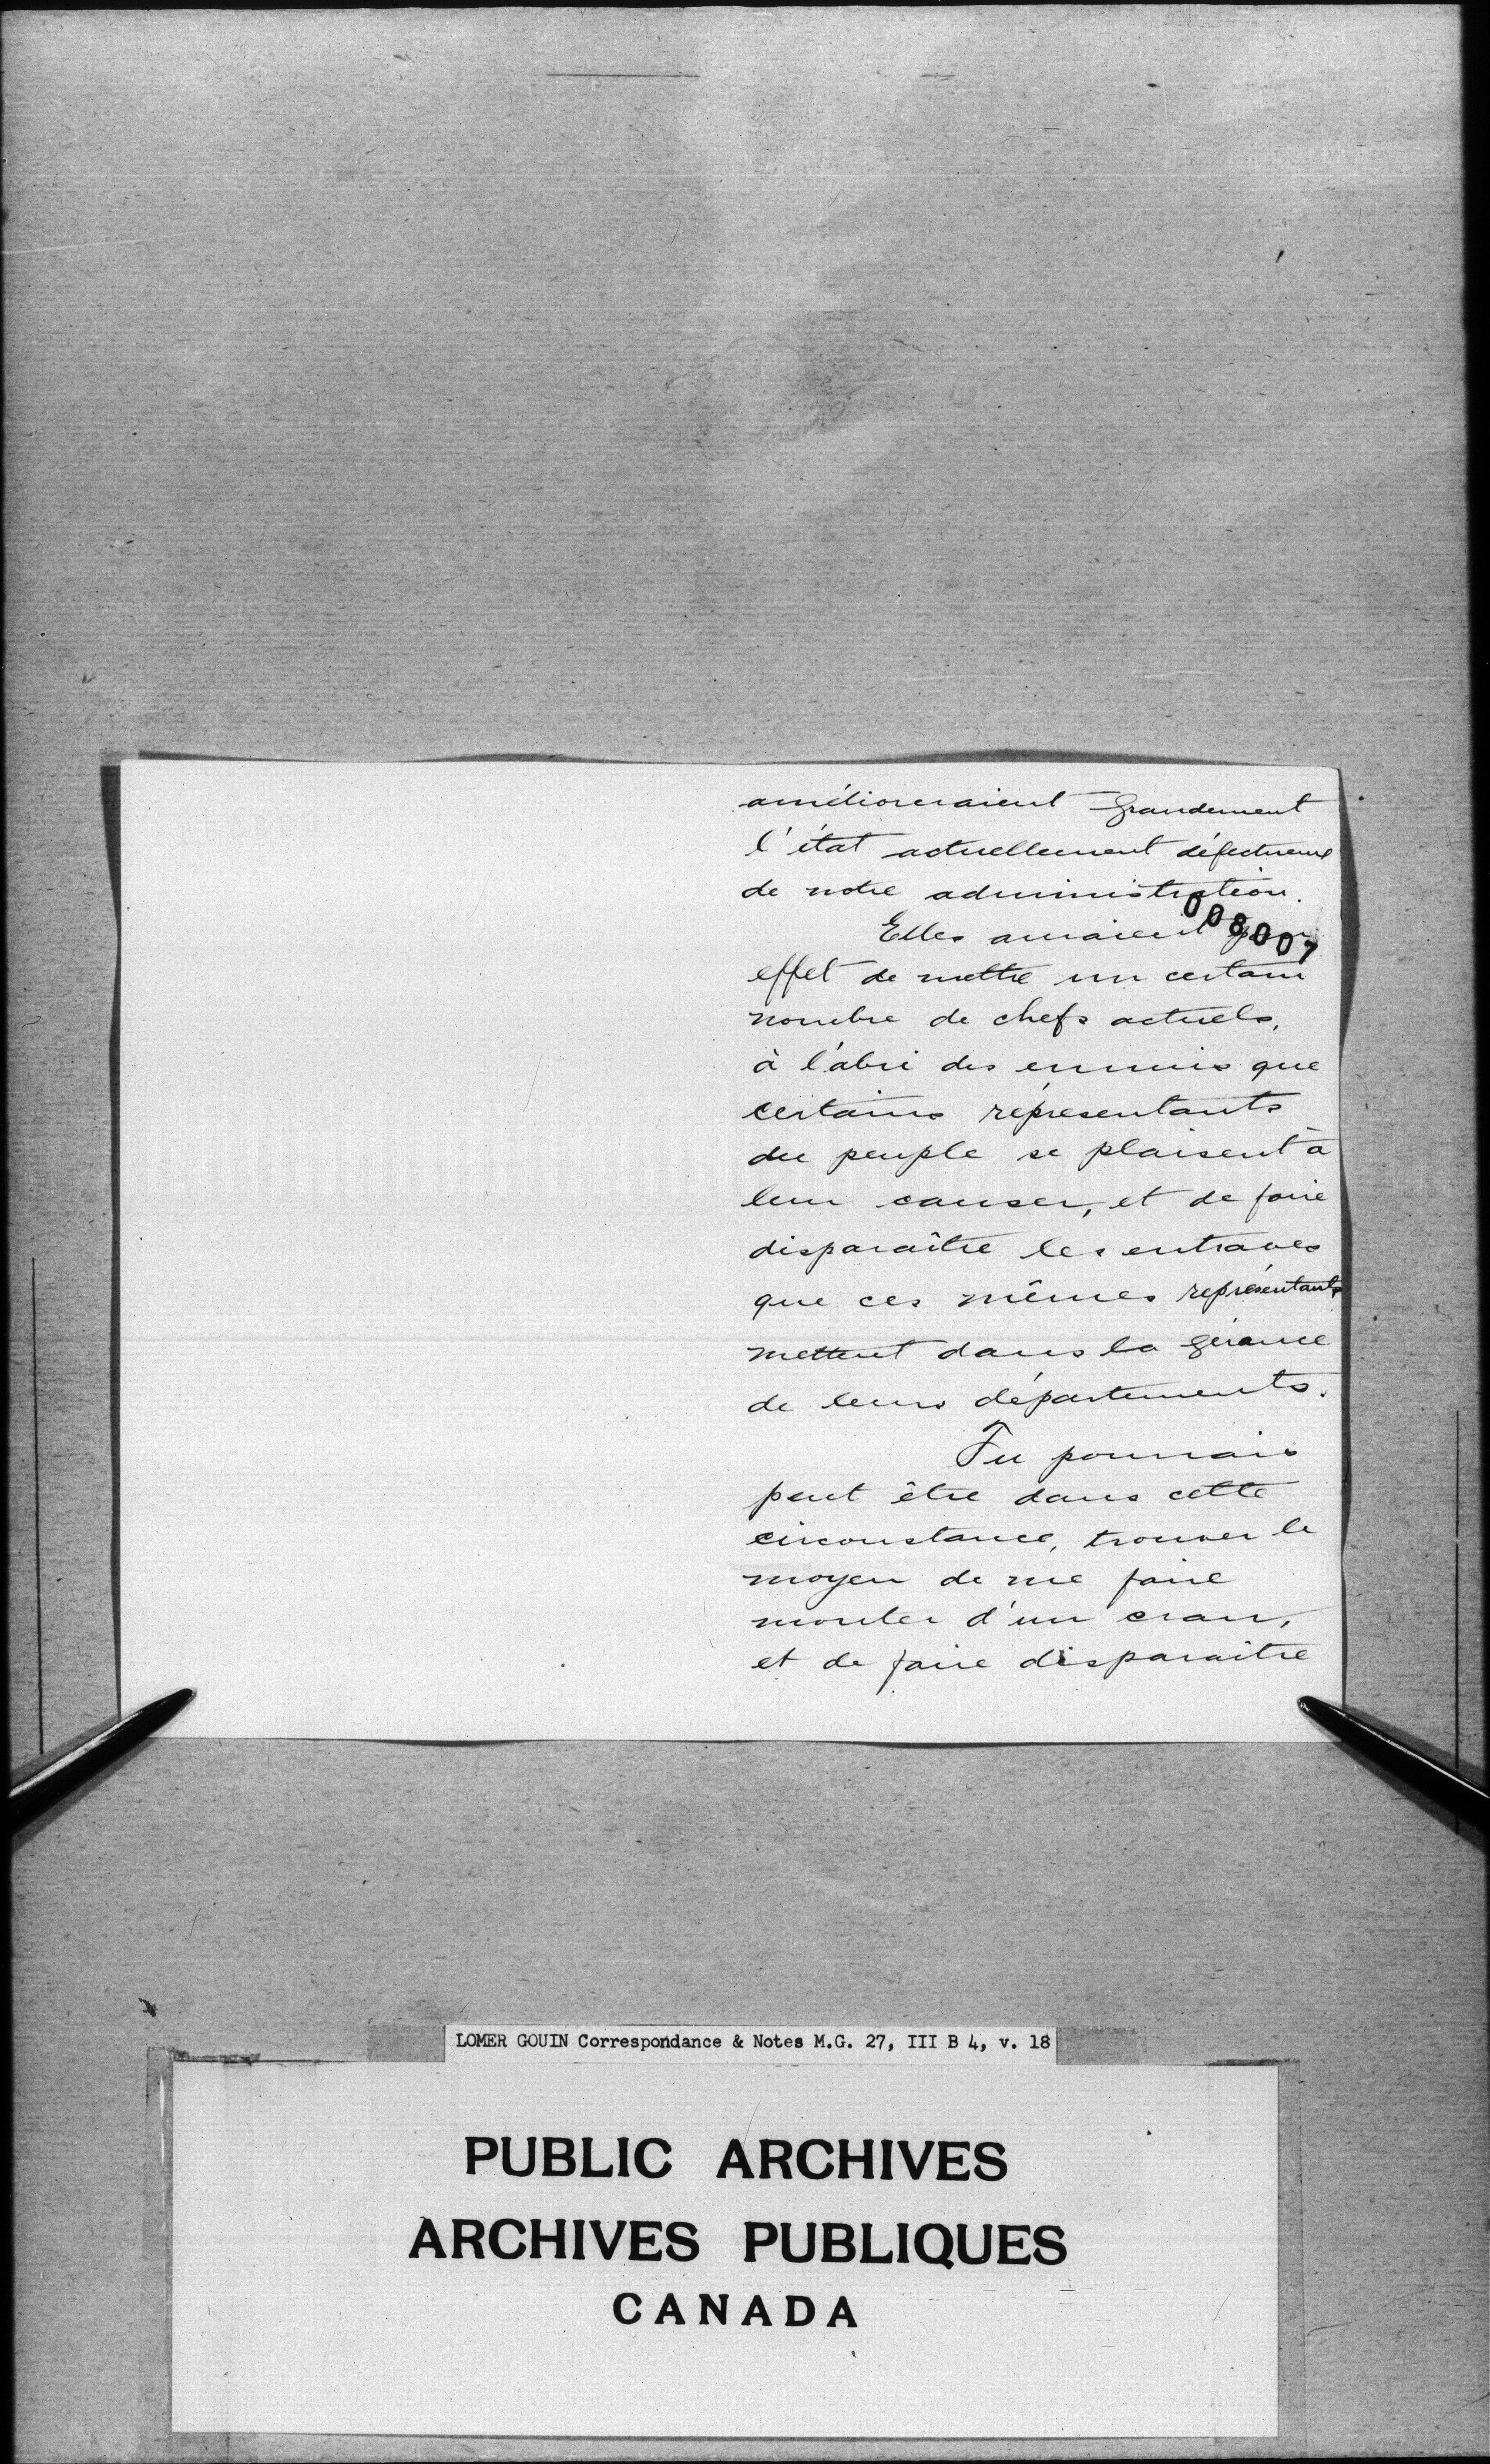 amélioreraient grandement
l'état actuellement défectueux
de notre administration.
008007
Elles auraient pour
effet de mettre un certain
nombre de chefs actuels,
à l'abri des ennuis que
certains représentants
du peuple se plaisent à
leur causer, et de faire
disparaître les entraves
que ces mêmes représentants
mettent dans la gérance
de leurs départements.
Tu pourrais
peut être dans cette
circonstance, trouver le
moyen de me faire
monter d'un cran,
et de faire disparaître
LOMER GOUIN Correspondance & Notes M.G. 27, III B 4, v. 18
PUBLIC ARCHIVES
ARCHIVES PUBLIQUES
CANADA